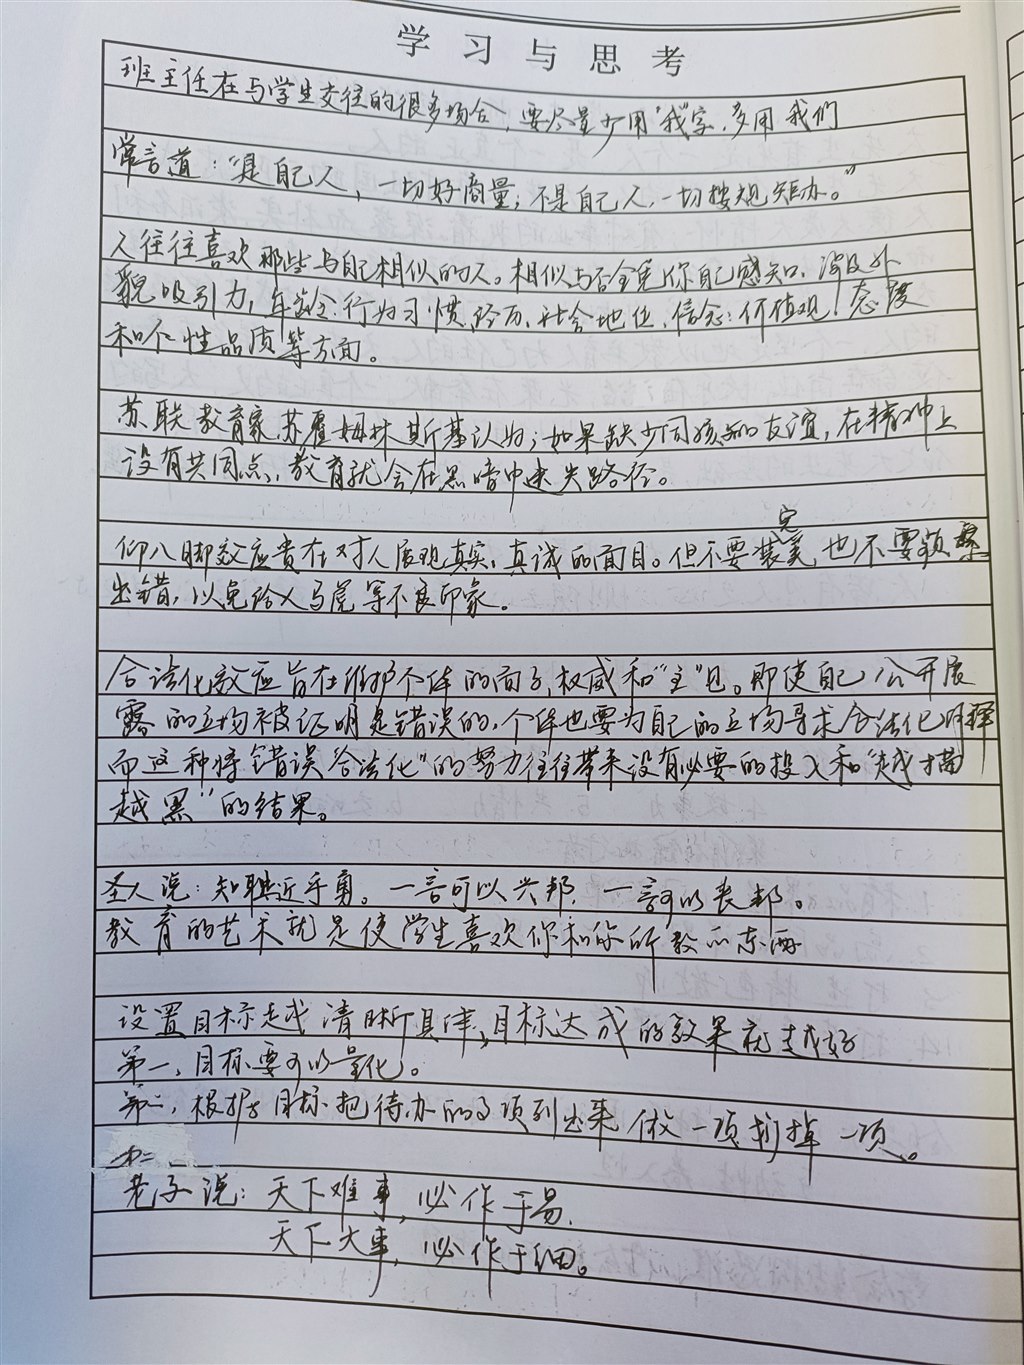 学习与思考
班主任在与学生交往的很多场合，要尽量少用“我”字，多用我们
常言道：“是自己人，一切好商量；不是自己人，一切按规矩办。”
人往往喜欢那些与自己相似的人。相似与否全凭你自己感知，涉及外
貌吸引力，年龄、行为习惯，经历，社会地位，信念；价值观，态度
和个性品质等方面。
苏联教育家苏霍姆林斯基认为，如果缺少同孩子的友谊，在精神上
没有共同点，教育就会在黑暗中迷失路径。
仰八脚效应贵在对人展现真实、真诚的面目。但不要装完美，也不要频繁
出错，以免给人马虎等不良印象。
合法化效应旨在维护个体的面子，权威和“主”见。即使自己公开展
露的立场被证明是错误的，个体也要为自己的立场寻求合法化
而这种将错误“合法化”的努力往往带来没有必要的投入和“越描
越黑”的结果。
圣人说：知耻近乎勇。一言可以兴邦，一言可以丧邦。
教育的艺术就是使学生喜欢你和你所教的东西
设置目标越清晰具体，目标达成的效果就越好
第一，目标要可以量化。
第二，根据目标把待办的事项列出来做一项划掉一项。
老子说：天下难事，必作于易，
天下大事，必作于细。